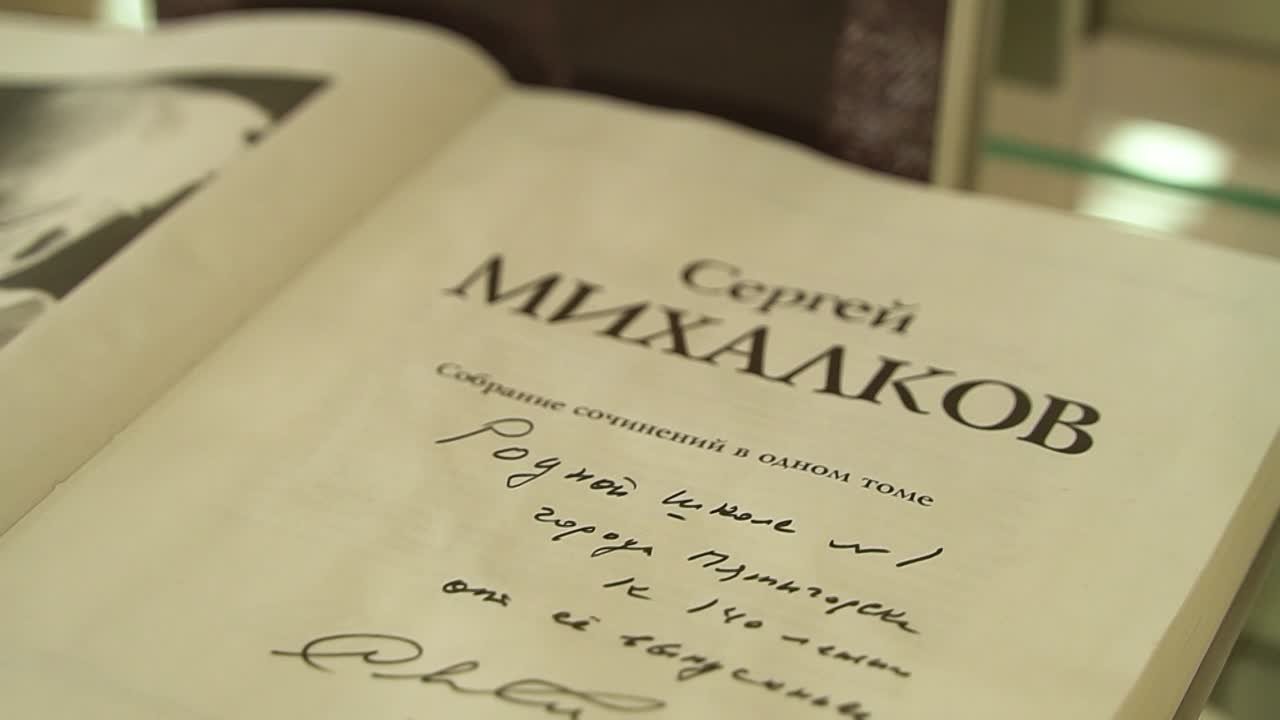 Сергей
МИХАЛКОВ
Собрание сочинений в одном томе
Родной школе № 1
города Пятигорска
к 140 летию
от её выпускника